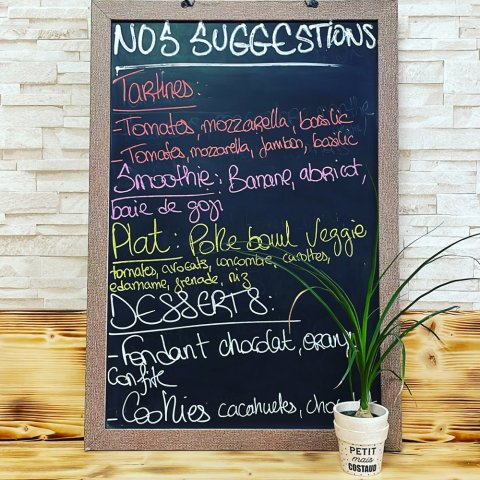 NOS SUGGESTIONS
Tartines:
-Tomates, mozzarella, basilic
-Tomates, mozzarella, jambon, basilic
Smoothie: Banane, abricot,
baie de goji
Plat: Poke bowl Veggie
tomates, avocats, concombre, carottes,
edamame, grenade, riz
DESSERTS:
-Fondant chocolat,
confite
-Cookies cacahuetes,
PETIT
mais
COSTAUD